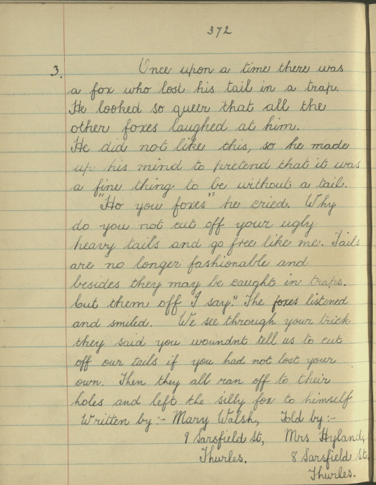 372
3. Once upon a time there was
a fox who lost his tail in a trap.
He looked so queer that all the
other foxes laughed at him.
He did not like this, so he made
up his mind to pretend that it was
a fine thing to be without a tail.
"Ho you foxes" he cried. Why
do you not cut off your ugly
heavy tails and go free like me. Tails
are no longer fashionable and
besides they may be caught in traps.
Cut them off I say." The foxes listened
and smiled. We see through your trick
they said you woundnt tell us to cut
off our tails if you had not lost your
own. Then they all ran off to their
holes and left the silly fox to himself
Written by:- Mary Walsh, Told by:-
9 Sarsfield St, Mrs Hyland,
Thurles. 8 Sarsfield St
Thurles.